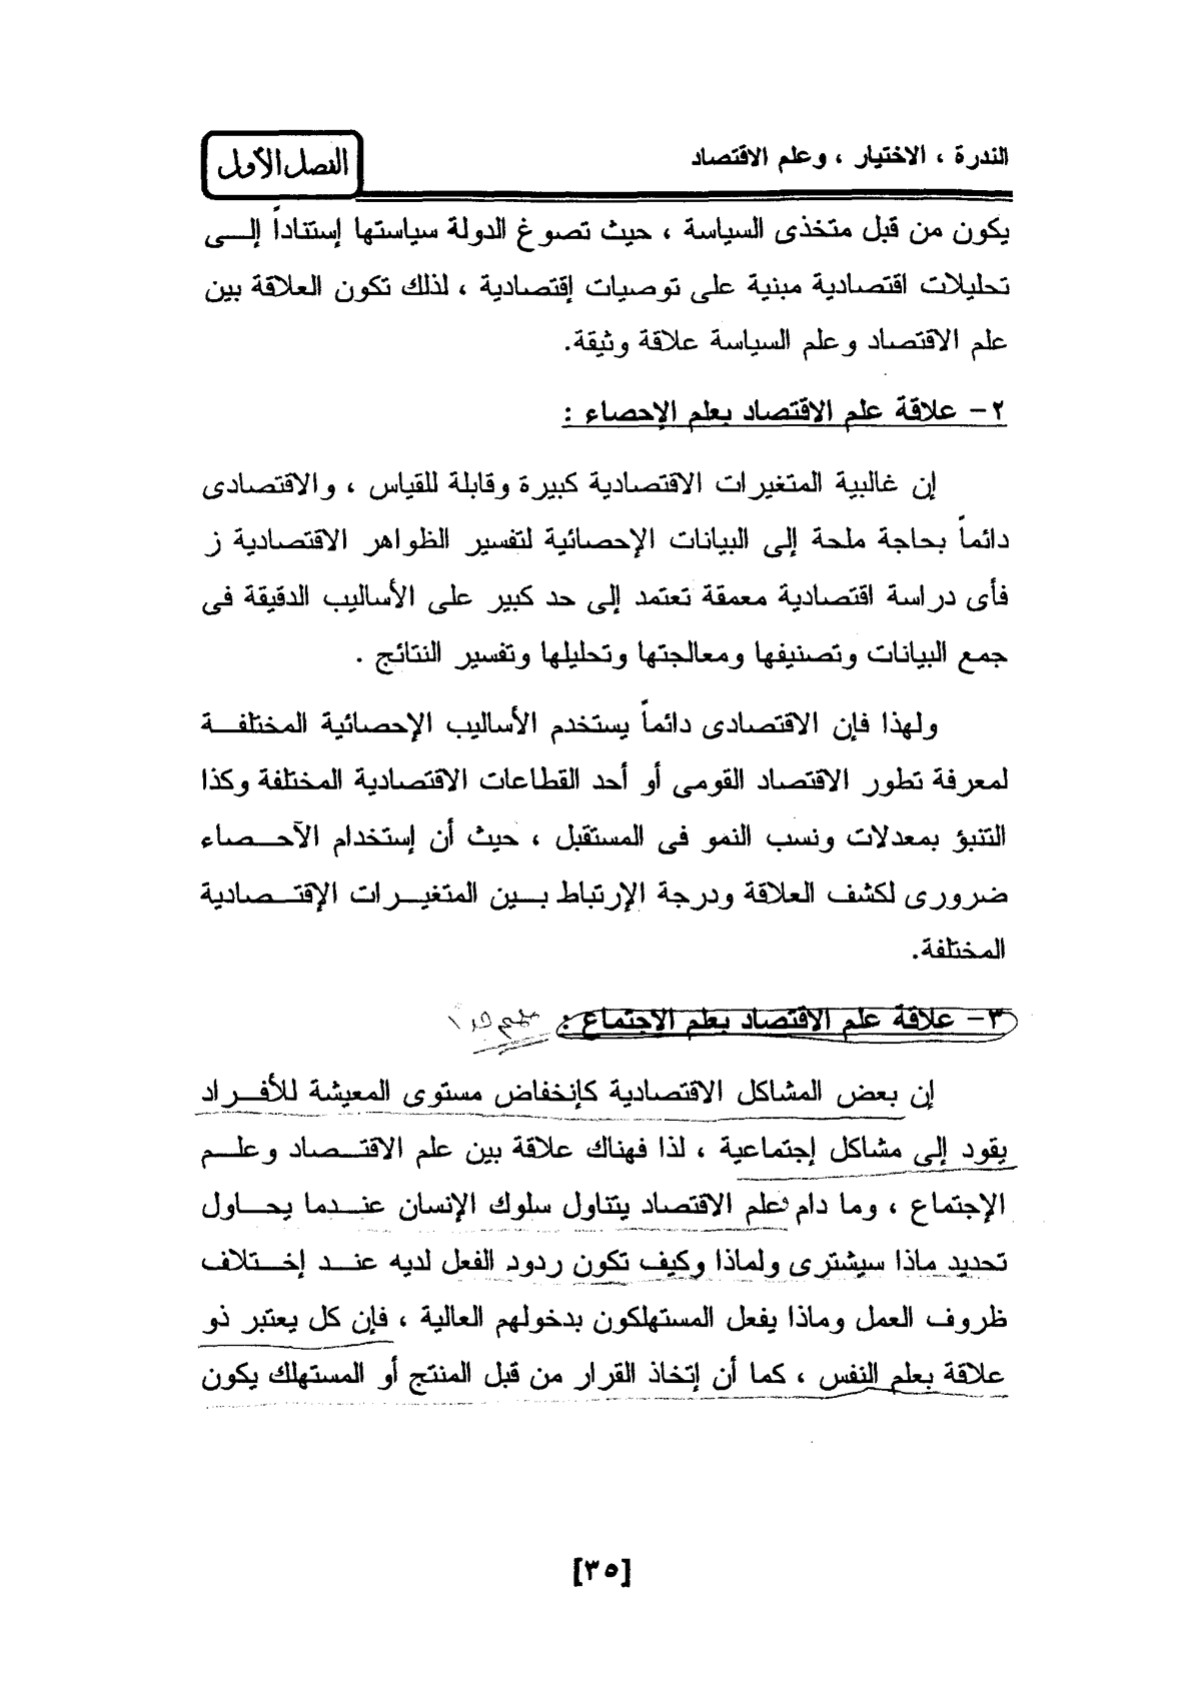 الندرة ، الاختيار ، وعلم الاقتصاد
الفصل الأول
يكون من قبل متخذى السياسة ، حيث تصوغ الدولة سياستها إستناداً إلى
تحليلات اقتصادية مبنية على توصيات إقتصادية ، لذلك تكون العلاقة بين
علم الاقتصاد وعلم السياسة علاقة وثيقة.
٢- علاقة علم الاقتصاد بعلم الإحصاء :
إن غالبية المتغيرات الاقتصادية كبيرة وقابلة للقياس ، والاقتصادى
دائماً بحاجة ملحة إلى البيانات الإحصائية لتفسير الظواهر الاقتصادية ز
فأى دراسة اقتصادية معمقة تعتمد إلى حد كبير على الأساليب الدقيقة فى
جمع البيانات وتصنيفها ومعالجتها وتحليلها وتفسير النتائج .
ولهذا فإن الاقتصادى دائماً يستخدم الأساليب الإحصائية المختلفة
لمعرفة تطور الاقتصاد القومى أو أحد القطاعات الاقتصادية المختلفة وكذا
التنبؤ بمعدلات ونسب النمو فى المستقبل ، حيث أن إستخدام الآحصاء
ضرورى لكشف العلاقة ودرجة الإرتباط بين المتغيرات الإقتصادية
المختلفة.
٣- علاقة علم الاقتصاد بعلم الإجتماع : مهم
إن بعض المشاكل الاقتصادية كإنخفاض مستوى المعيشة للأفراد
يقود إلى مشاكل إجتماعية ، لذا فهناك علاقة بين علم الاقتصاد وعلم
الإجتماع ، وما دام علم الاقتصاد يتناول سلوك الإنسان عندما يحاول
تحديد ماذا سيشترى ولماذا وكيف تكون ردود الفعل لديه عند إختلاف
ظروف العمل وماذا يفعل المستهلكون بدخولهم العالية ، فإن كل يعتبر ذو
علاقة بعلم النفس ، كما أن إتخاذ القرار من قبل المنتج أو المستهلك يكون
[٣٥]